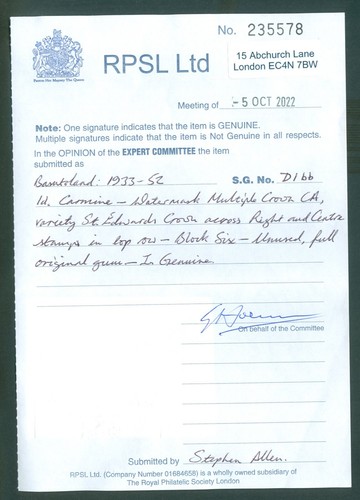 No. 235578
RPSL Ltd
15 Abchurch Lane
London EC4N 7BW
Meeting of -5 OCT 2022
Note: One signature indicates that the item is GENUINE.
Multiple signatures indicate that the item is Not Genuine in all respects.
In the OPINION of the EXPERT COMMITTEE the item
submitted as
Basutoland: 1933-52 S.G. No. D1bb
1d. Carmine - Watermark Multiple Crown CA,
variety St. Edwards Crown across Right and Centre
stamps in top row - Block Six - Unused, full
original gum - Is Genuine.
On behalf of the Committee
Submitted by Stephen Allen.
RPSL Ltd. (Company Number 01684658) is a wholly owned subsidiary of
The Royal Philatelic Society London